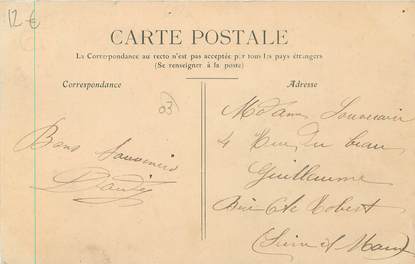 12 €
CARTE POSTALE
La Correspondance au recto n'est pas acceptée par tous les pays étrangers
(Se renseigner à la poste)
Correspondance
Adresse
03
Bons Souvenirs
Madame Souverain
4 Rue du beau
Guillaume
Brie Cte Robert
(Seine et Marne